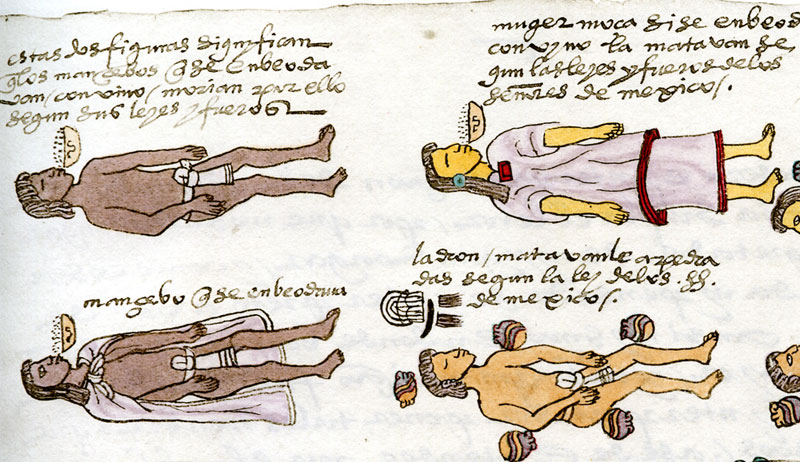 estas dos figuras significan
q los mançebos q se enbeoda
van / con vino / morian por ello
segun sus leyes y fueros
muger moça si se enbeod
con vyno la matavan se
gun las leyes y fueros de los
señores de mexico /.
mançebo q se enbeodava
ladron / matavanle a pedra
das segun la ley de los .ss.
de mexico /.